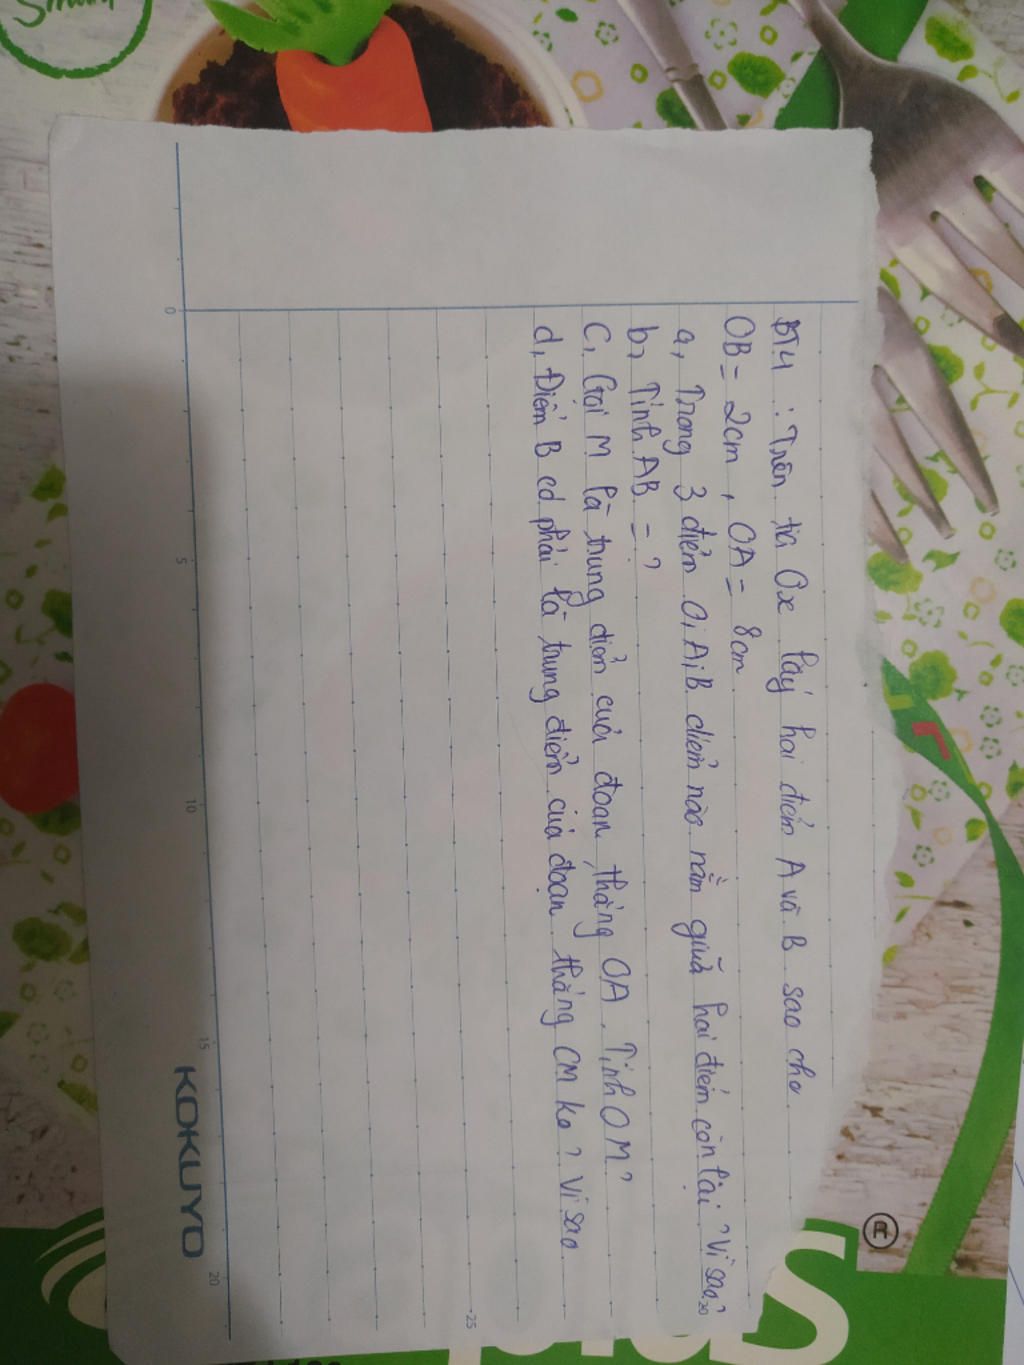 BT4 : Trên tia Ox lấy hai điểm A và B sao cho
OB = 2cm, OA = 8cm
a, Trong 3 điểm O, A, B điểm nào nằm giữa hai điểm còn lại? Vì sao?
b, Tính AB = ?
C, Gọi M là trung điểm của đoạn thẳng OA. Tính OM?
d, Điểm B có phải là trung điểm của đoạn thẳng CM ko? Vì sao.
0
5
10
15
20
20
25
KOKUYO
Smart
®